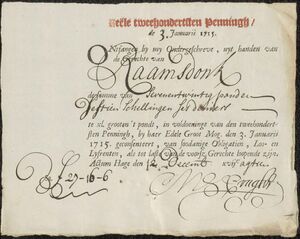 tweehondertsten Penningh,
de 3. Januarii 1715.
Ontfangen by my Ondergeschreve, uyt handen van
de Gerechte van
Raamsdonk
de somme van Sevenentwintig ponden
Sestien Schellingen ses deniers
te xl. grooten 't pondt, in voldoeninge van den tweehondert-
sten Penningh, by haer Edele Groot Mog. den 3. Januarii
1715. geconsenteert, van sodanige Obligatien, Los- en
Lyfrenten, als tot laste van de voorsz. Gerechte lopende zijn.
Actum Hage den Decemb
27-16-6